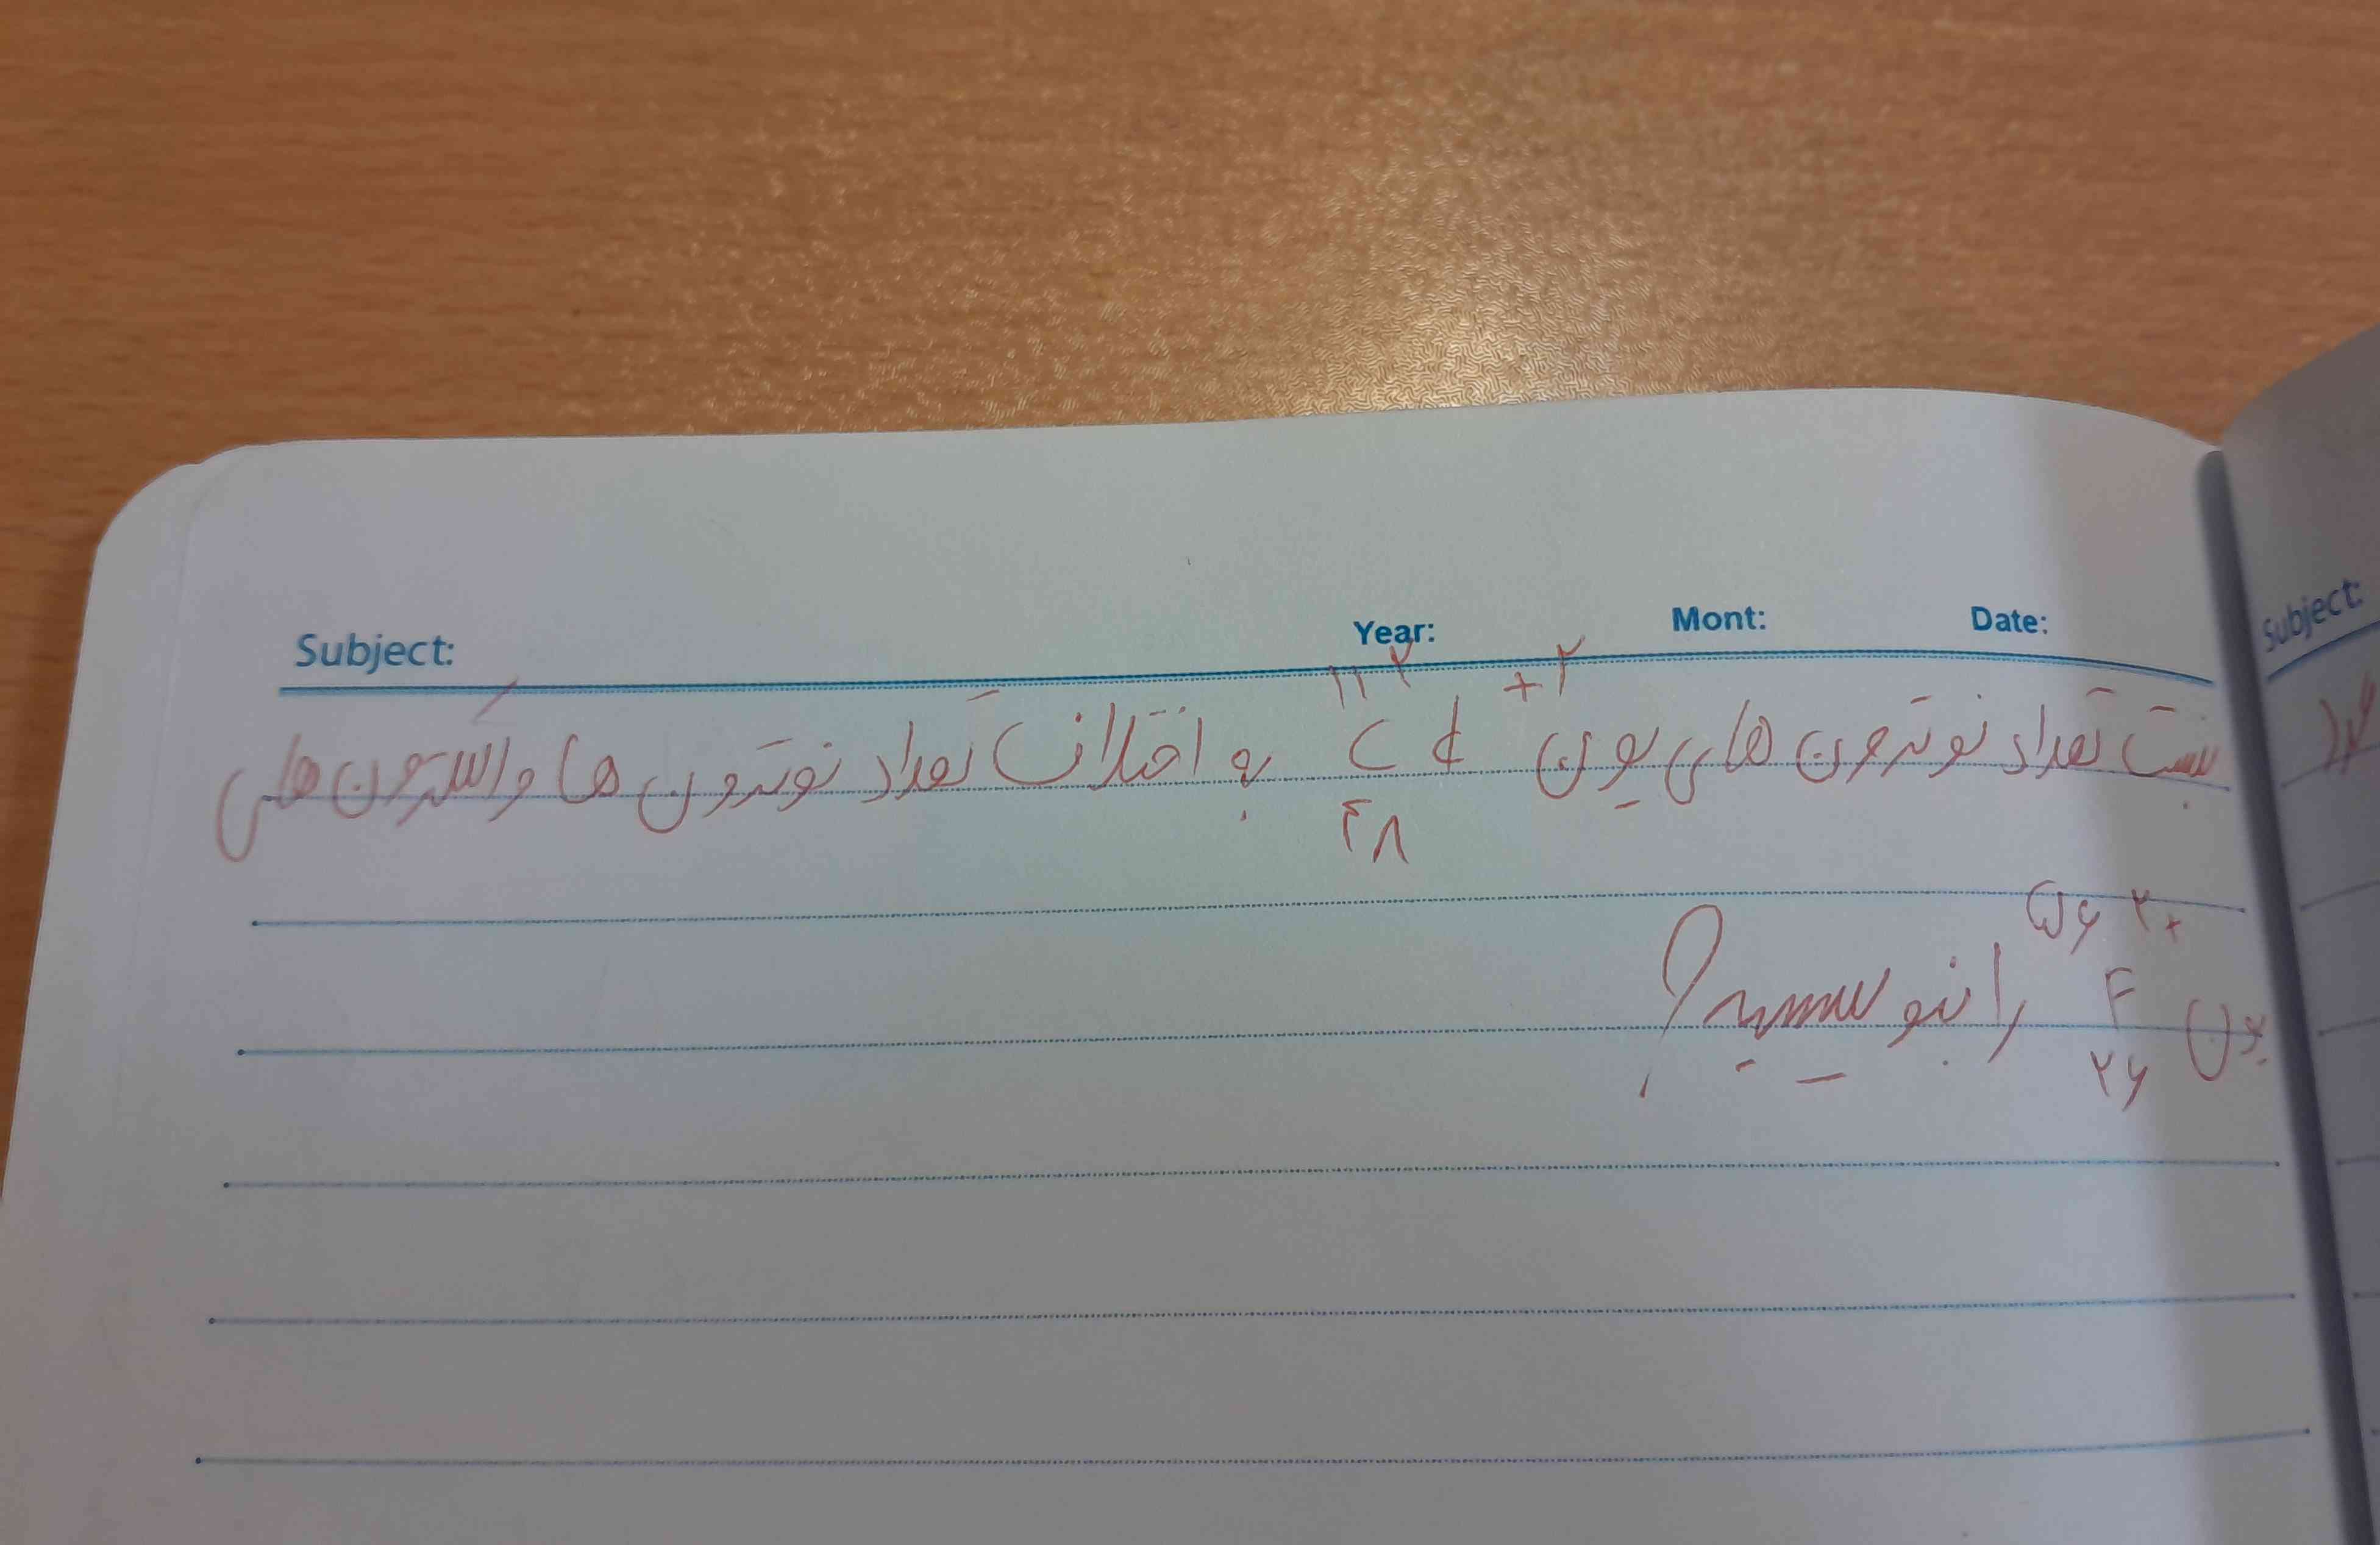 Subject: Year: Mont: Date:
نسبت تعداد نوترون های یون ¹¹²₄₈Cd⁺² به اختلاف تعداد نوترون ها و الکترون های
یون ⁵⁶₂₆F²⁺ را بنویسید؟
Subject: